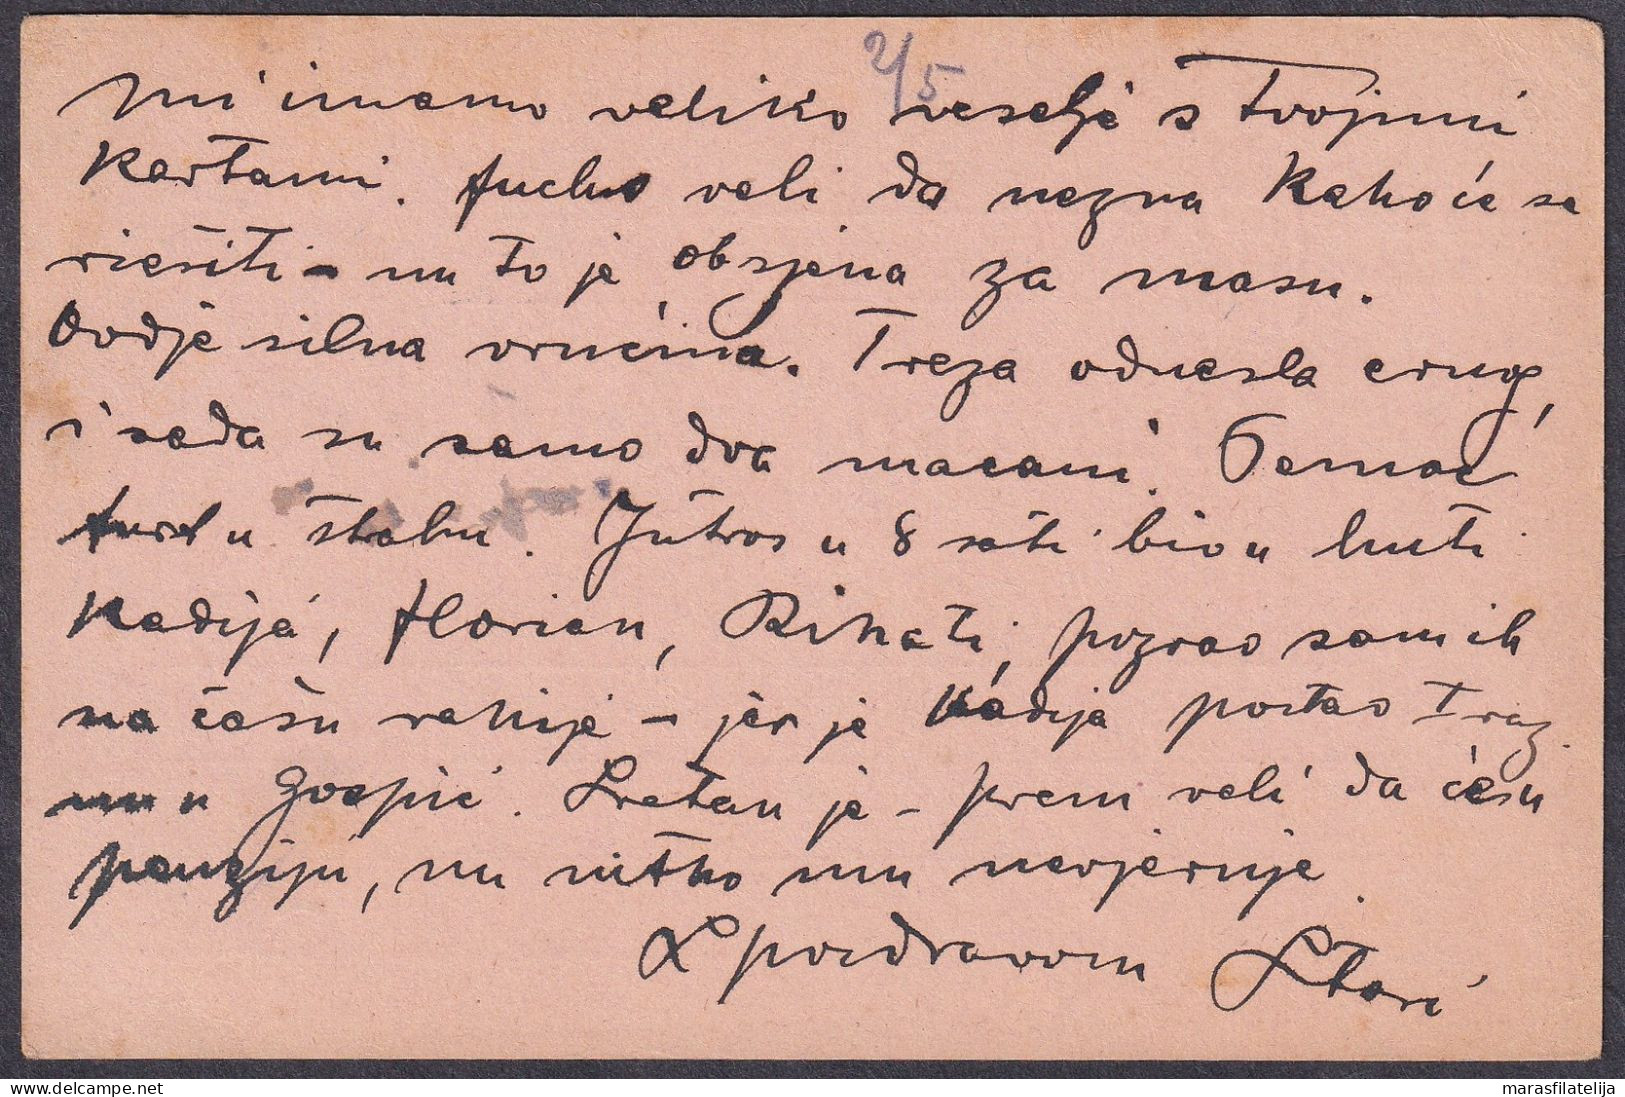 2/5
Mi imamo veliko veselje s Tvojimi
kartami. Fuchs veli da nezna kako će se
riešiti - nu to je obsjena za masu.
Ovdje silna vrućina. Treza odnesla crnog,
i sada su samo dva macani.
u štabu. Jutros u 8 sati bio u kući
Kadija, Florian, Rikati, pozvao sam ih
na čašu rakije - jer je Kadija postao
mu u Gospić. Sretan je - prem veli da će su
penziju, nu nitko mu nevjeruje.
S pozdravom Stari
delcampe.net
marasfilatelija